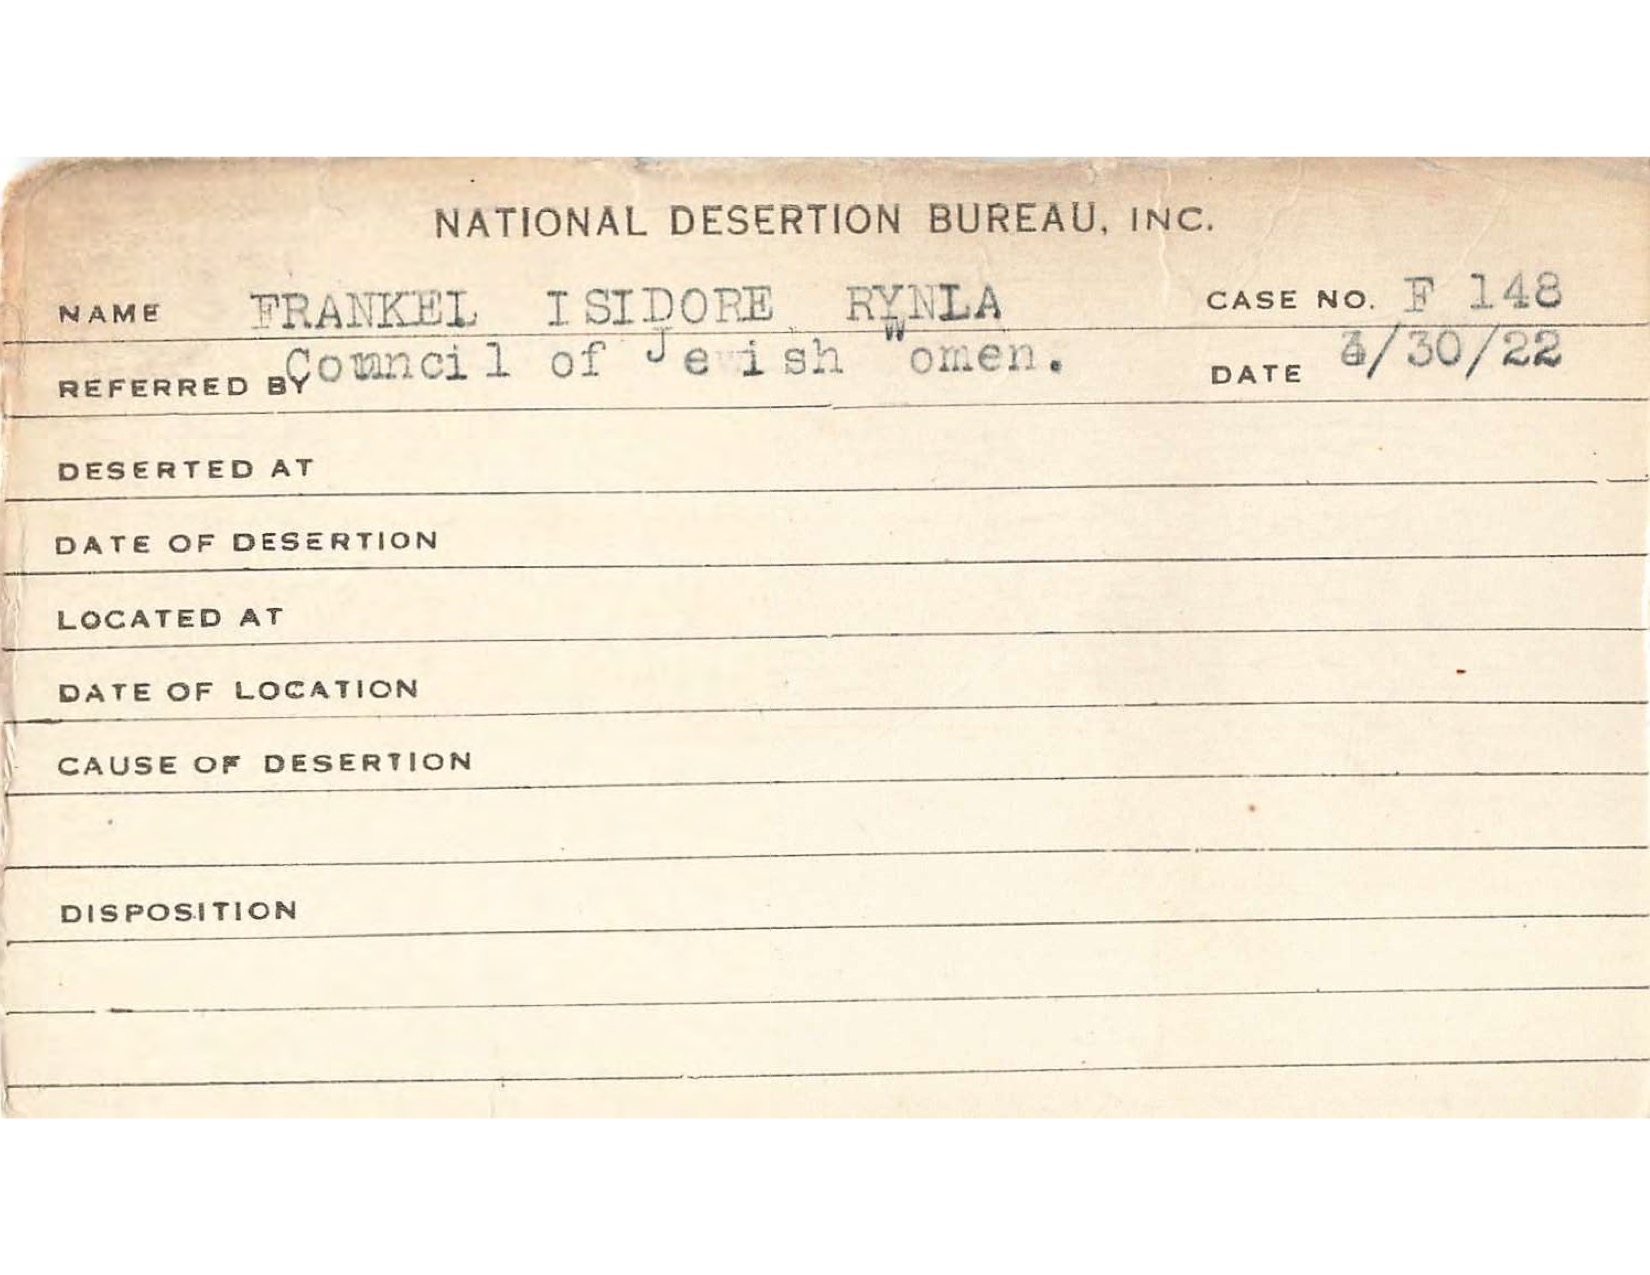 NATIONAL DESERTION BUREAU, INC.
NAME FRANKEL ISIDORE RYNLA CASE NO. F 148
REFERRED BY Council of Jewish Women. DATE /30/22
DESERTED AT
DATE OF DESERTION
LOCATED AT
DATE OF LOCATION
CAUSE OF DESERTION
DISPOSITION